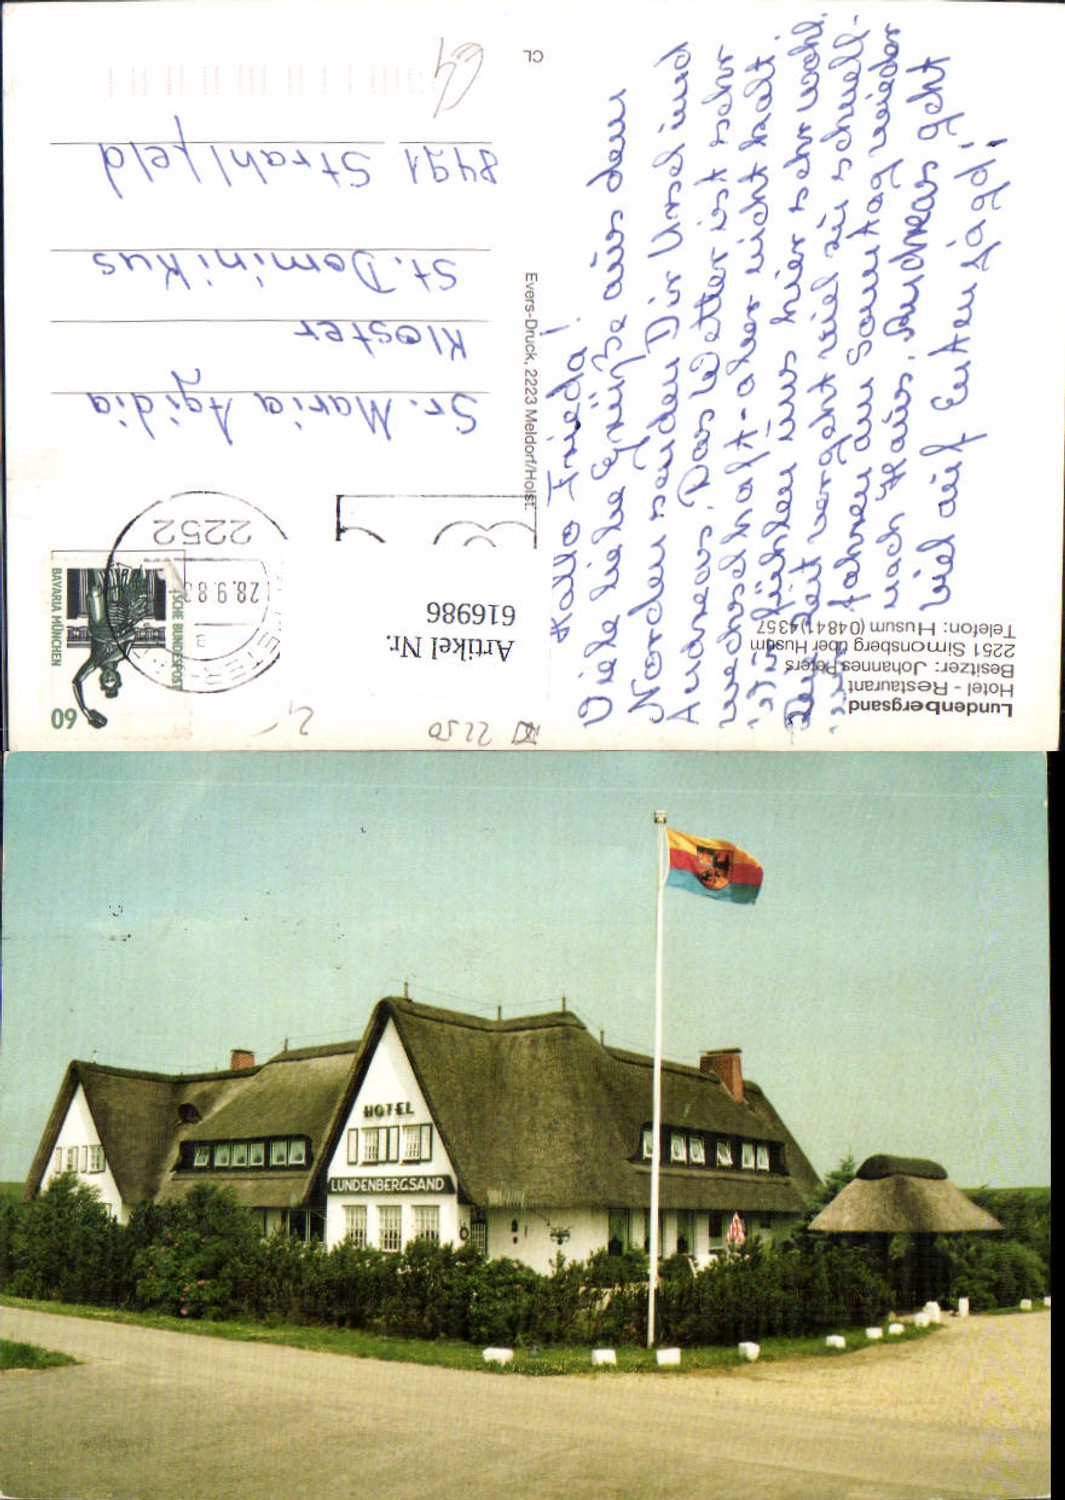 Lundenbergsand
Hotel - Restaurant
Besitzer: Johannes Peters
2251 Simonsberg über Husum
Telefon: Husum (04841) 4357
Hallo Frieda!
Viele liebe Grüße aus dem
Norden senden Dir Ursel und
Andreas. Das Wetter ist sehr
wechselhaft - aber nicht kalt.
Wir fühlen uns hier sehr wohl.
Die Zeit vergeht viel zu schnell -
wir fahren am Sonntag wieder
nach Haus. Andreas geht
viel auf Entenjagd!
Evers-Druck, 2223 Meldorf/Holst.
CL
2250
Artikel Nr.
616986
60
DEUTSCHE BUNDESPOST
BAVARIA MÜNCHEN
28.9.8
a
2252
Sr. Maria Agidia
Kloster
St. Dominikus
8491 Strahlfeld
HOTEL
LUNDENBERGSAND